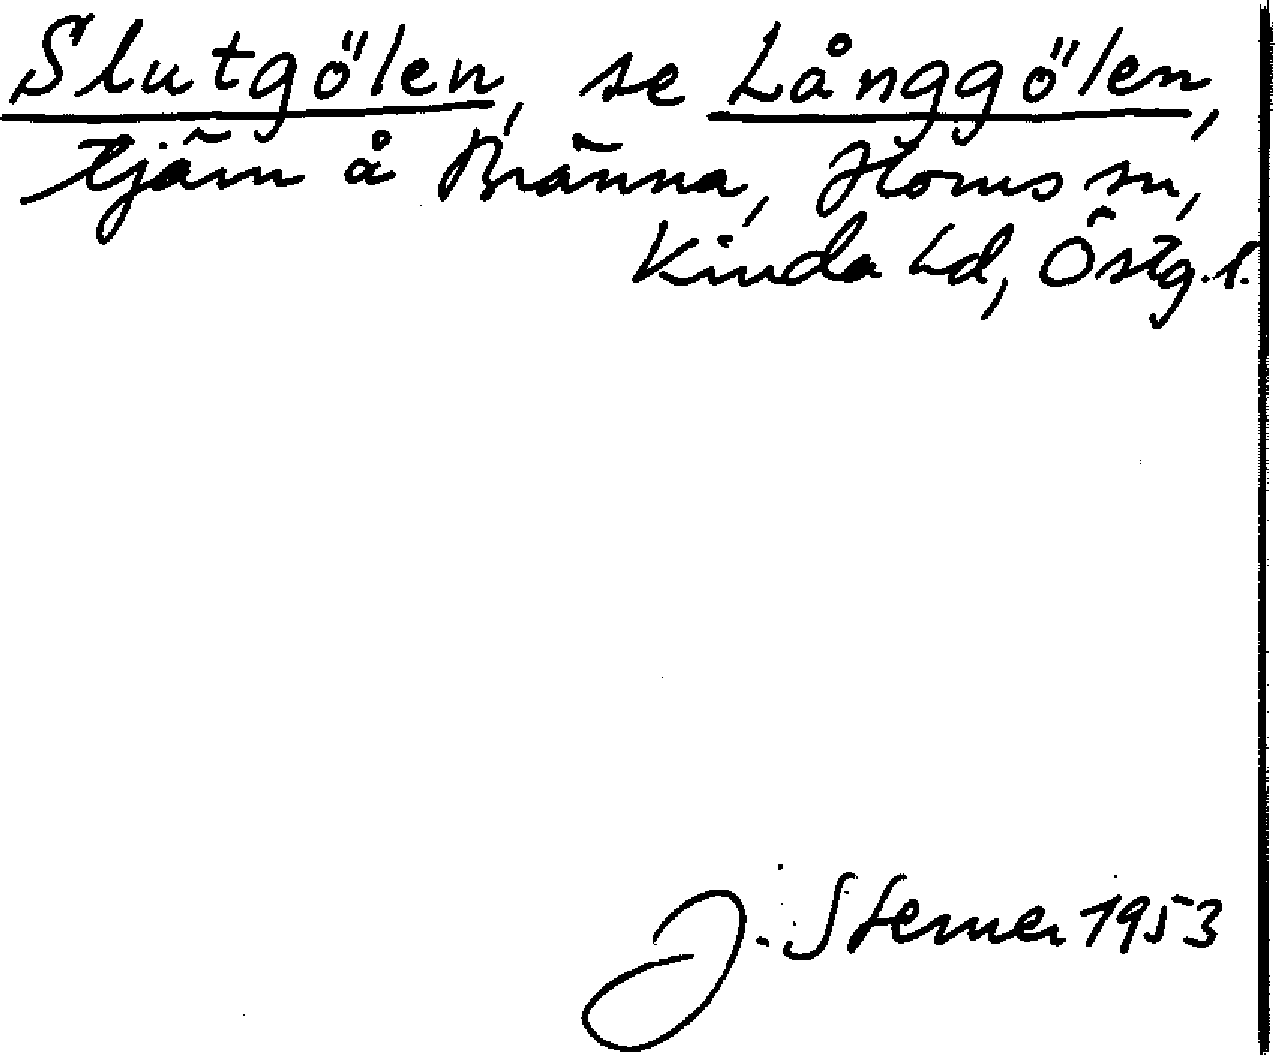 Slutgölen, se Långgölen,
tjärn å Bränna, Horns sn,
Kinda hd, Östg. l.
J. Sterner 1953